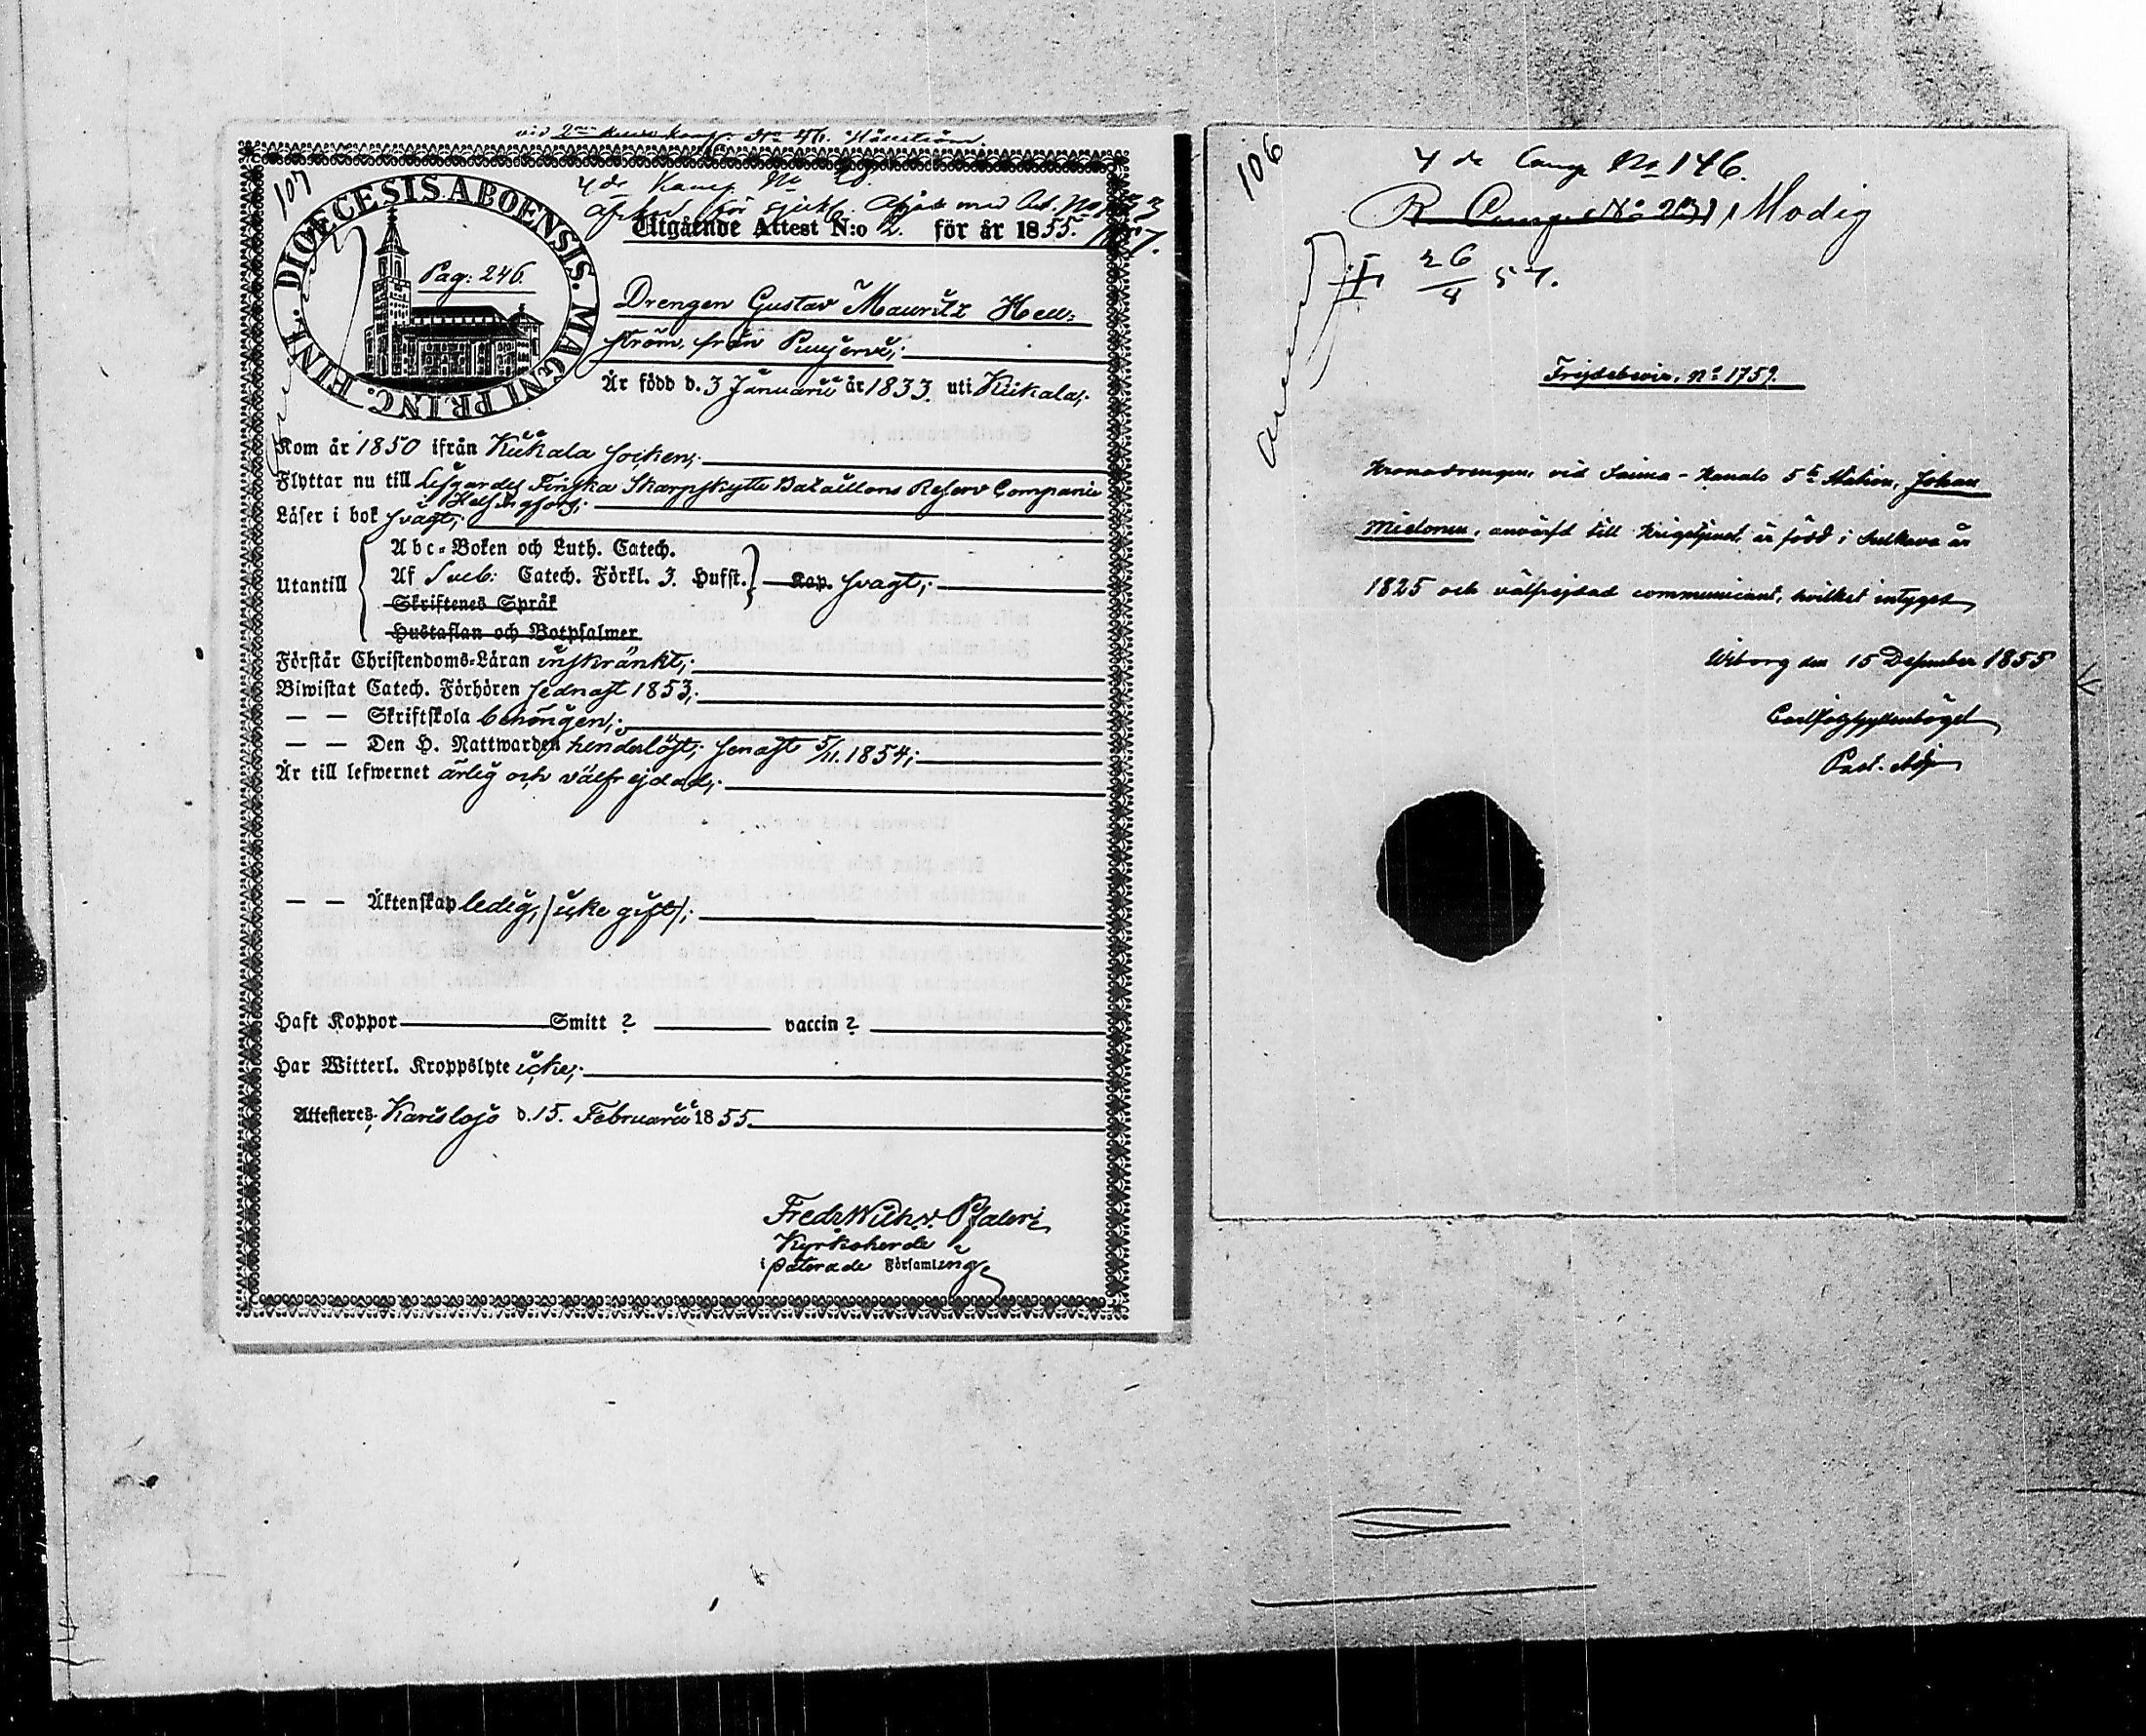 107
4de Kamp. No 28.
Utgående Attest N:o 12. för år 1855.
1857.
DIOECESIS ABOENSIS. MAGNI PRINC. FINL.
Pag: 246.
Drengen Gustav Mauritz Hell-
ström, från Puujervi;
Är född d. 3 Januarii år 1833. uti Kiikala;
Kom år 1850 ifrån Kiikala socken;
Flyttar nu till Lifgardes Finska Skarpskytte Bataillons Reserv Companie
i Helsingfors;
Läser i bok svagt;
Utantill
Abc-Boken och Luth. Catech.
Af Sveb: Catech. Förkl. 3. Hufst. Kap. svagt;
Skriftenes Språk
Hustaflan och Botpsalmer
Förstår Christendoms-Läran inskränkt;
Biwistat Catech. Förhören sednast 1853;
— — Skriftskola behörigen;
— — Den H. Nattwarden senast 5/11. 1854;
Är till lefwernet ärlig och välfrejdad;
— — Äktenskap ledig, /icke gift/;
Haft Koppor Smitt ? vaccin ?
Har Witterl. Kroppslyte icke;
Attesteres, Karislojo d. 15. Februarii 1855.
Kyrkoherde
i Församling
106
4 de Comp No 146.
Modig
26/4 57.
Frejdebevis, No 1759.
Kronodrengen vid Saima-Kanals 5te Station, Johan
Mielonen, använd till Krigstjenst, är född i Sulkava år
1825 och välfrejdad communicant, hvilket intygas
Wiborg den 15 December 1855
Past. Adj